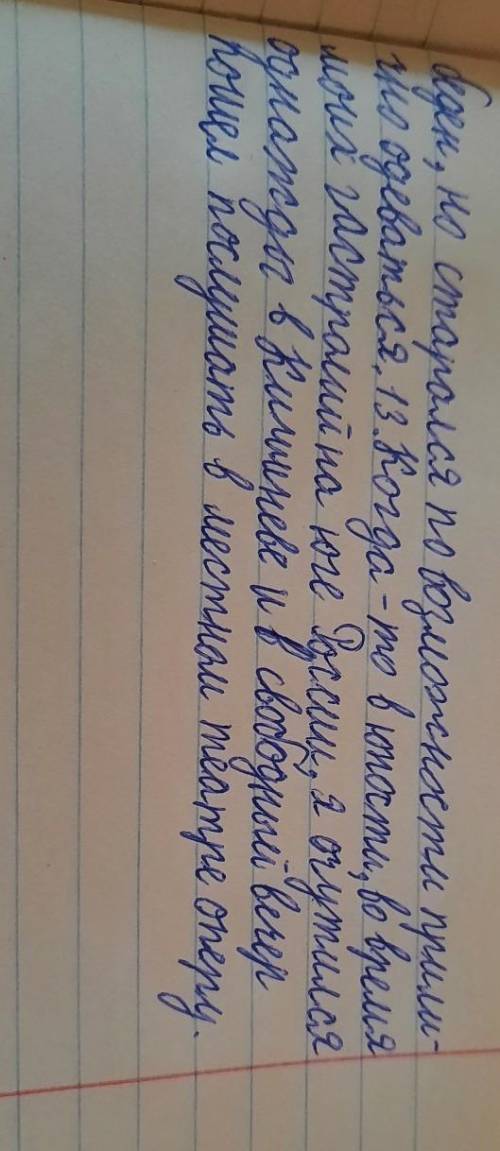 беден, но старался по возможности прили-
чно одеваться. 13. Когда-то в юности, во время
моих гастролий на юге России, я очутился
однажды в Кишиневе и в свободный вечер
пошел послушать в местном театре оперу.